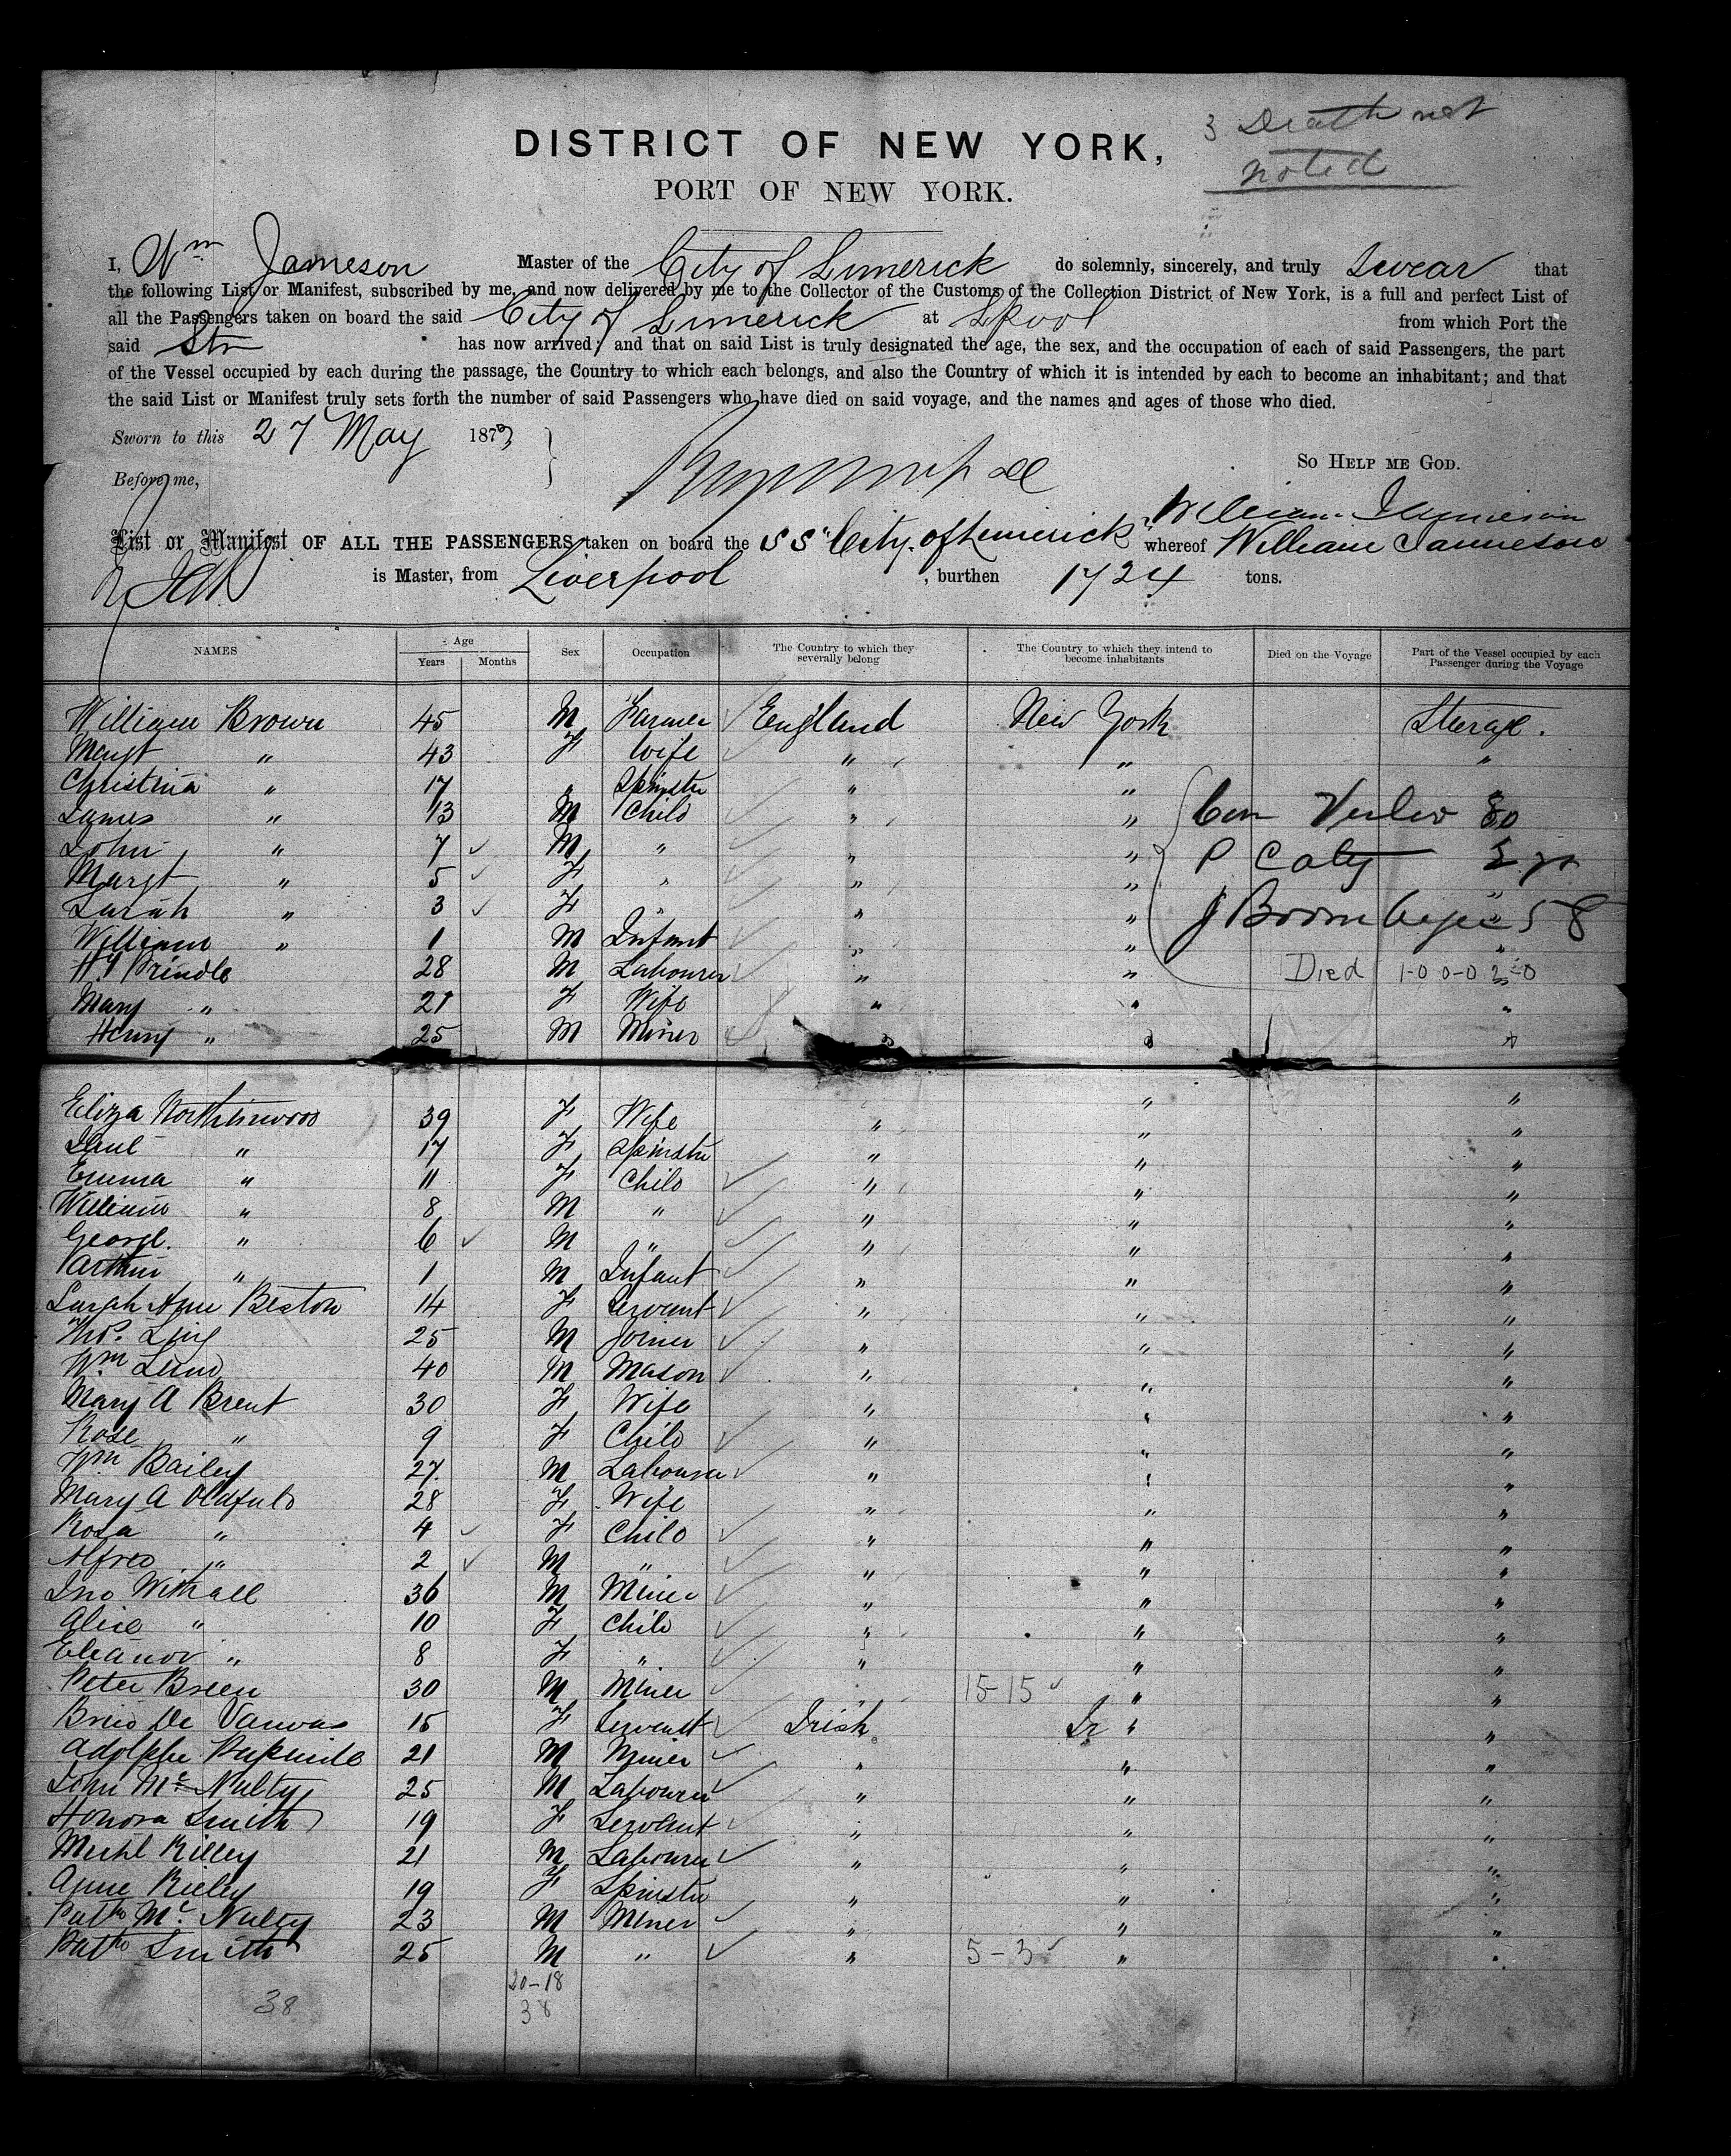 3 Death not
noted
DISTRICT OF NEW YORK,
PORT OF NEW YORK.
I, Wm Jameson Master of the City of Limerick do solemnly, sincerely, and truly Swear that
the following List or Manifest, subscribed by me, and now delivered by me to the Collector of the Customs of the Collection District of New York, is a full and perfect List of
all the Passengers taken on board the said City of Limerick at Lpool from which Port the
said Str has now arrived; and that on said List is truly designated the age, the sex, and the occupation of each of said Passengers, the part
of the Vessel occupied by each during the passage, the Country to which each belongs, and also the Country of which it is intended by each to become an inhabitant; and that
the said List or Manifest truly sets forth the number of said Passengers who have died on said voyage, and the names and ages of those who died.
Sworn to this 27 May 1873
So Help me God.
Before me,
William Jameson
List or Manifest OF ALL THE PASSENGERS taken on board the SS "City of Limerick" whereof William Jameson
is Master, from Liverpool, burthen 1724 tons.
NAMES Age Years Months Sex Occupation The Country to which they severally belong The Country to which they intend to become inhabitants Died on the Voyage Part of the Vessel occupied by each Passenger during the Voyage
William Brown 45 M Farmer England New York Sterage.
Margt " 43 F Wife " " "
Christina " 17 " Spinster " "
James " 13 M Child " "
John " 7 M " " "
P Caty
Margt " 5 F " " "
Sarah " 3 F " " "
J 58
William " 1 M Infant " "
H Prindle 28 M Labourer " "
Died
Mary " 21 F Wife " " "
Henry " 25 M Miner " " "
Eliza 39 F Wife " " "
" 17 F Spinster " " "
Emma " 11 F Child " " "
William " 8 M " " " "
George " 6 M " " " "
Arthur " 1 M Infant " " "
Sarah Ann Beston 14 F Servant " " "
Thos. Ling 25 M Joiner " " "
Wm 40 M Mason " " "
Mary A Brent 30 F Wife " " "
Rose " 9 F Child " " "
Wm Bailey 27 M Labourer " " "
Mary A 28 F Wife " " "
Rosa " 4 F Child " " "
Alfred " 2 M " " " "
Jno Withall 36 M Miner " " "
Alice " 10 F Child " " "
Eleanor " 8 F " " " "
Peter Breen 30 M Miner " 15-15 " "
De 15 F Servant Irish " "
Adolphe 21 M Miner " " "
John McNulty 25 M Labourer " " "
Honora Smith 19 F Servant " " "
Michl Rilley 21 M Labourer " " "
Anne Rieley 19 F Spinster " " "
Patk McNulty 23 M Miner " " "
Patk Smith 25 M " " 5-3 " "
20-18
38 38